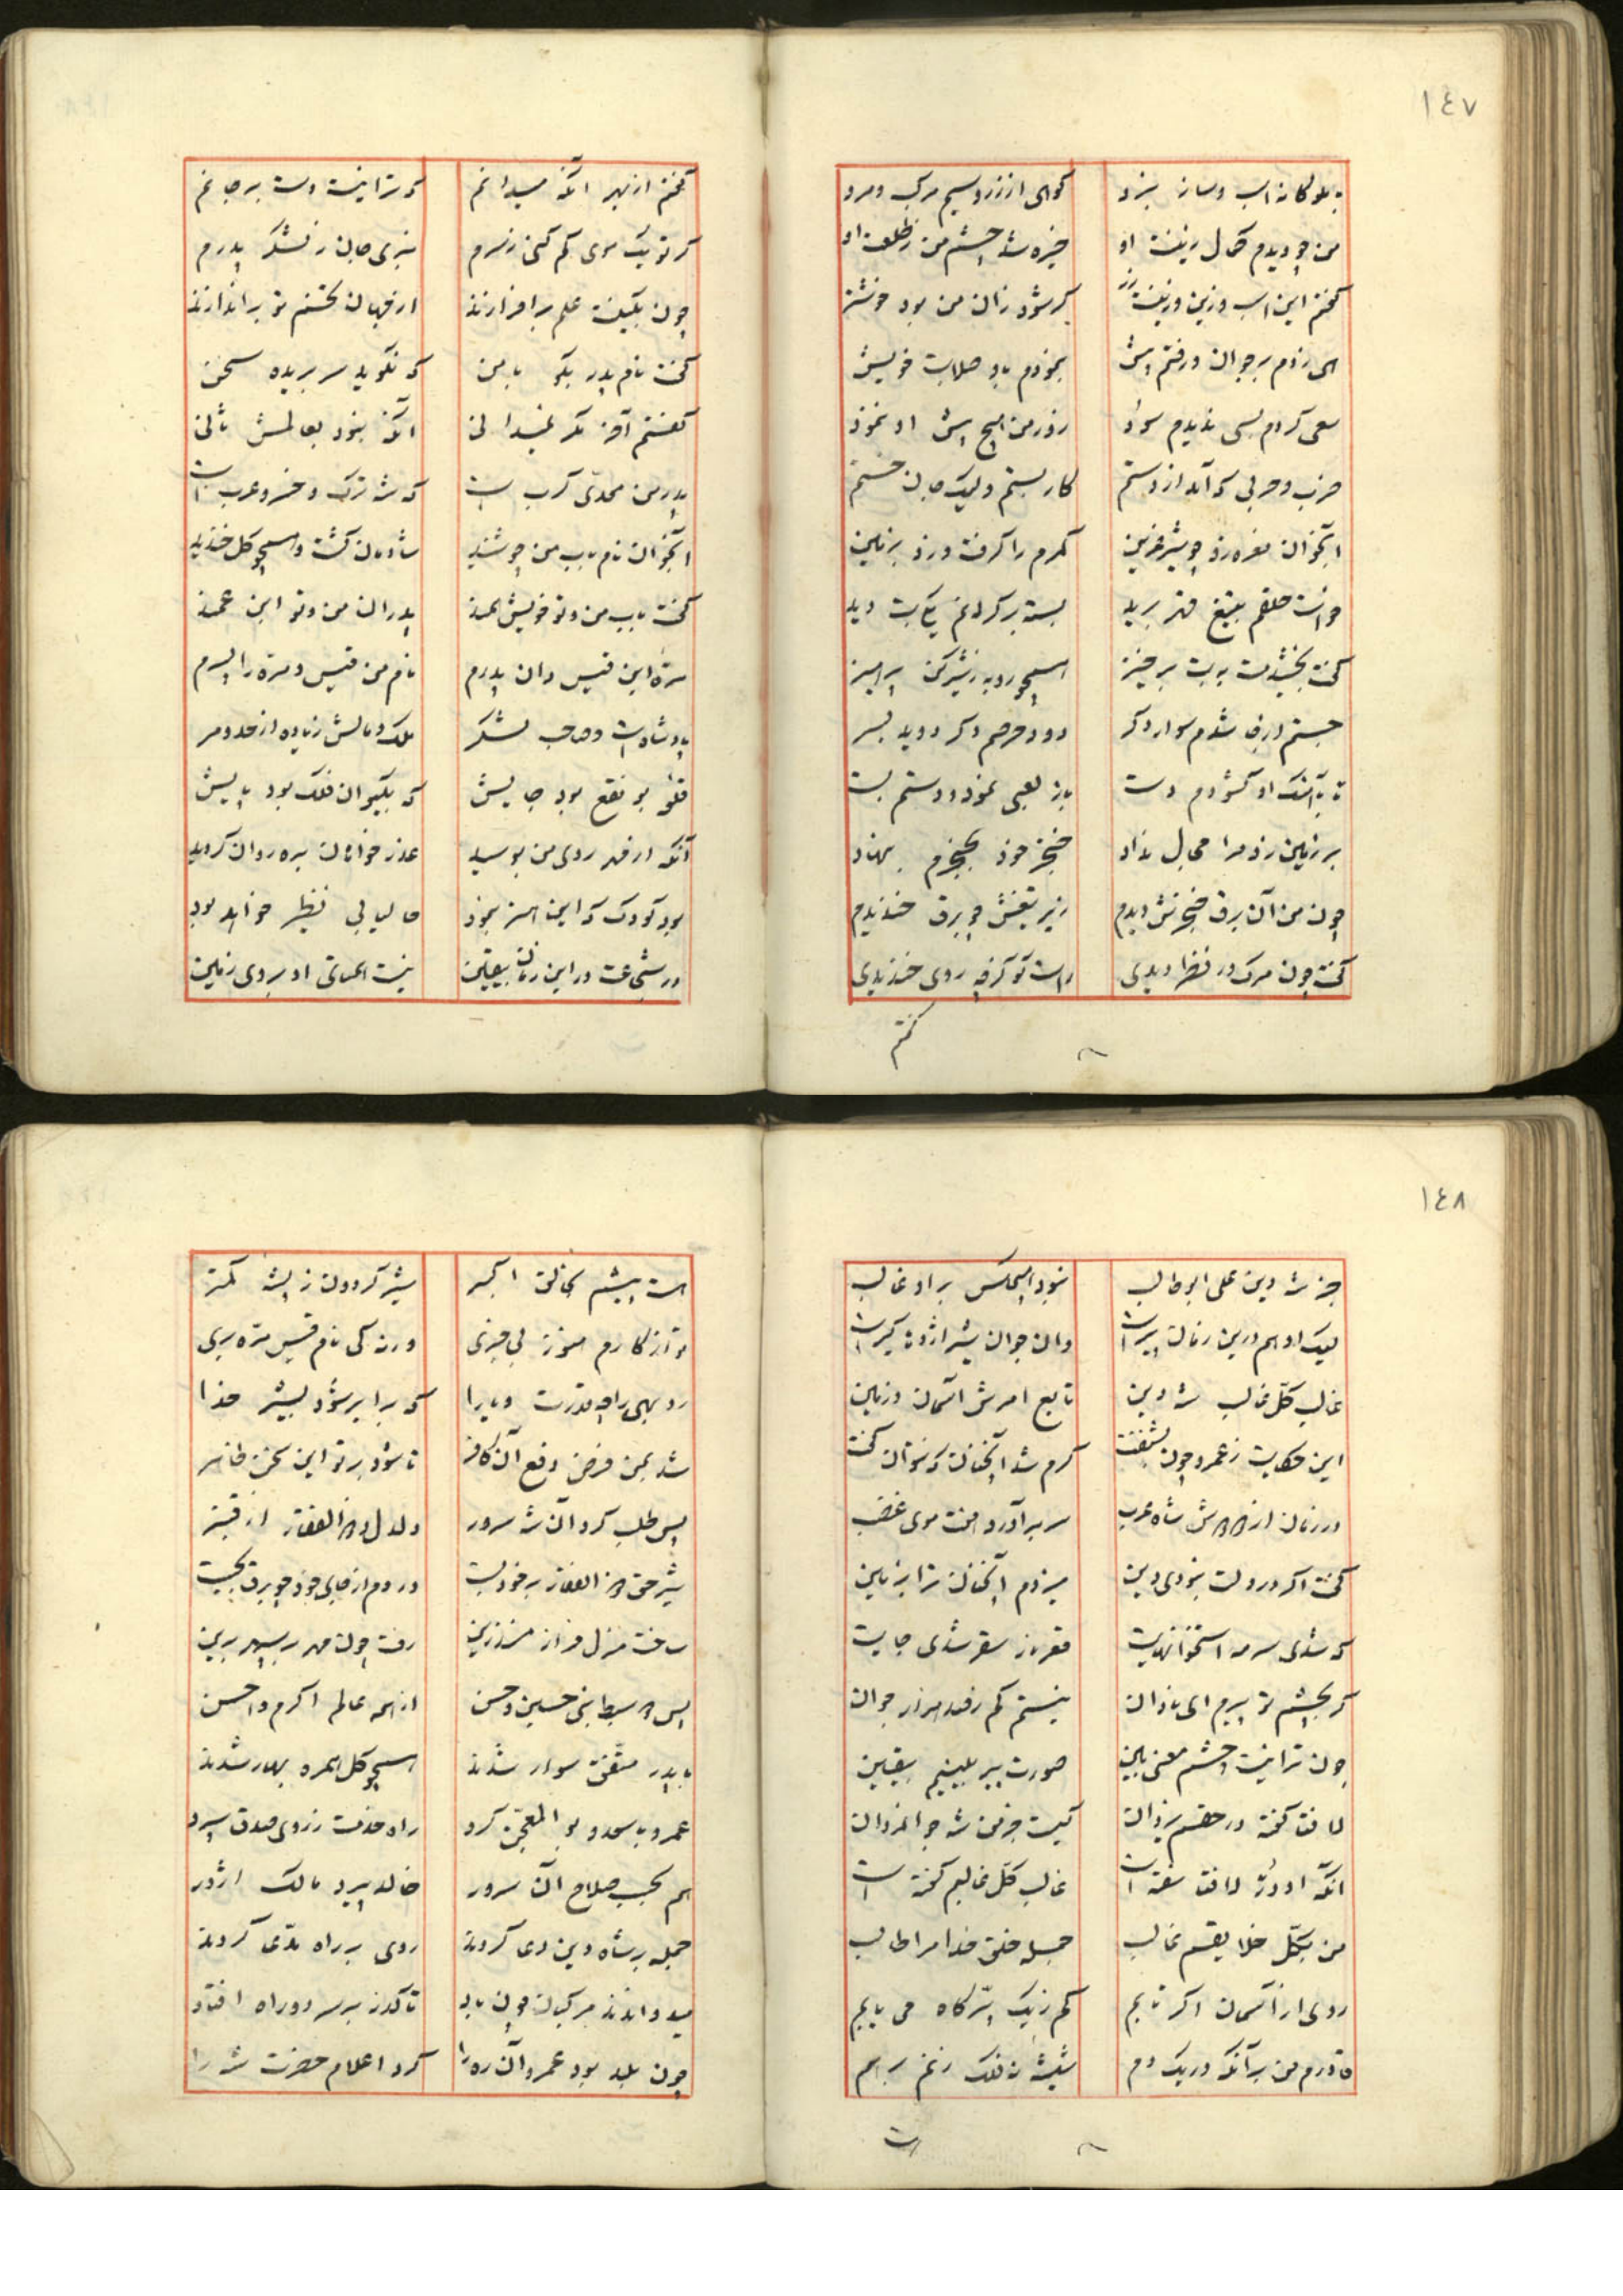 ١٤٧
من چو دیدم کمال زینت او خیره شد چشم من ز طلعت او
گفتم این اسب و زین و زینت زر گر شود زان من بود خوشتر
هی زدم بر جوان و رفتم پیش بنمودم باو صلابت خویش
سعی کردم بسی ندیدم سود زور من هیچ پیش او ننمود
ضرب و حربی که آمد از دستم کار بستم ولیک جان خستم
آنجوان نعره زد چو شیر عرین کمرم را گرفت و زد بزمین
خواست حلقم بتیغ قهر برید بسته بر گردنم یکی بت دید
گفت بخشیدمت به بت برخیز همچو روبه ز شیر کن پرهیز
جستم از جا شدم سوار دگر
تا بآهنگ او گشودم دست باز لعبی نمود و دستم بست
بر زمین زد مرا مجال نداد خنجر خود بحنجرم بنهاد
چون من آن برق خنجرش دیدم زیر تیغش چو برق خندیدم
گفت چون مرگ در قضا دیدی راست گو کز چه روی خندیدی
گفتم
گفتم از بهر آنکه میدانم که ترا نیست دست بر جانم
گر تو یک موی کم کنی ز سرم نبری جان ز لشکر پدرم
چون بکینت علم برافرازند از جهان تخم تو براندازند
گفت نام پدر بگو با من که نگوید سر بریده سخن
گفتم آخر مگر نمیدانی آنکه نبود بعالمش ثانی
پدر من معدی کرب است که شه ترک و خسرو عرب است
آنجوان نام باب من چو شنید شادمان گشت و همچو گل خندید
گفت باب من و تو خویش همند پدران من و تو ابن عمند
مره ابن قیس دان پدرم نام من قیس و مره را پسرم
پادشاهست و صاحب لشکر ملک و مالش زیاده از حد و مر
قلعه بو نقع بود جایش که بکیوان فلک بود پایش
آنکه از قهر روی من بوسید عذر خواهان بره روان گردید
بود کودک که این هنر بنمود حالیا بی نظیر خواهد بود
در شجاعت در این زمان بیقین نیست همتای او بروی زمین
١٤٨
جز شه دین علی ابو طالب نبود هیچکس بر او غالب
لیک او هم درین زمان پیر است وان جوان شیر اژدها گیر است
غالب کل غالب شه دین تابع امرش آسمان و زمین
این حکایت ز عمرو چون بشنفت گرم شد آنچنان که نتوان گفت
در زمان از شاه عرب سر برآورد موی غضب
گفت اگر در دلت نبودی دین میزدم آنچنان ترا بزمین
که شدی سرمه استخوانهایت قعر نار سقر شدی جایت
گر بچشم تو پیرم ای نادان نیستم کم ز صد هزار جوان
چون ترا نیست چشم معنی بین صورت پیر بینیم بیقین
لافتی گفته در حقم یزدان کیست جز من شه جوانمردان
آنکه او در لافتی سفته است غالب کل غالبم گفته است
من بکل خلایقم غالب جمله خلق خدا مرا طالب
روی از آسمان اگر تابم کم ز یک پر کاه می یابم
قادرم من بر آنکه در یک دم شیشه نه فلک زنم بر هم
هست
هست پیشم بخالق اکبر شیر گردون ز پشه کمتر
تو ز کارم هنوز بی خبری ورنه کی نام قیس مره بری
روبهی را چه قدرت و یارا که برابر شود بشیر خدا
شد بمن فرض دفع آن کافر تا شود بر تو این سخن ظاهر
پس طلب کرد آن شه سرور دلدل و ذوالفقار از قنبر
شیر حق ذوالفقار بر خود بست در دم از جای خود چو برق بجست
ساخت منزل فراز مسند زین رفت چون مهر بر سپهر برین
پس دو سبط نبی حسین و حسن از همه عالم اکرم و احسن
با پدر متفق سوار شدند همچو گل همره بهار شدند
عمرو با سعد و بو المعجن کرد راه خدمت ز روی صدق سپرد
هم بحسب صلاح آن سرور خالد پیر و مالک اژدر
جمله بر شاه دین دعا کردند روی بر راه مدعا کردند
میدواندند مرکبان چون باد تا گذر بر سر دو راه افتاد
چون بلد بود عمرو آن ره را کرد اعلام حضرت شه را